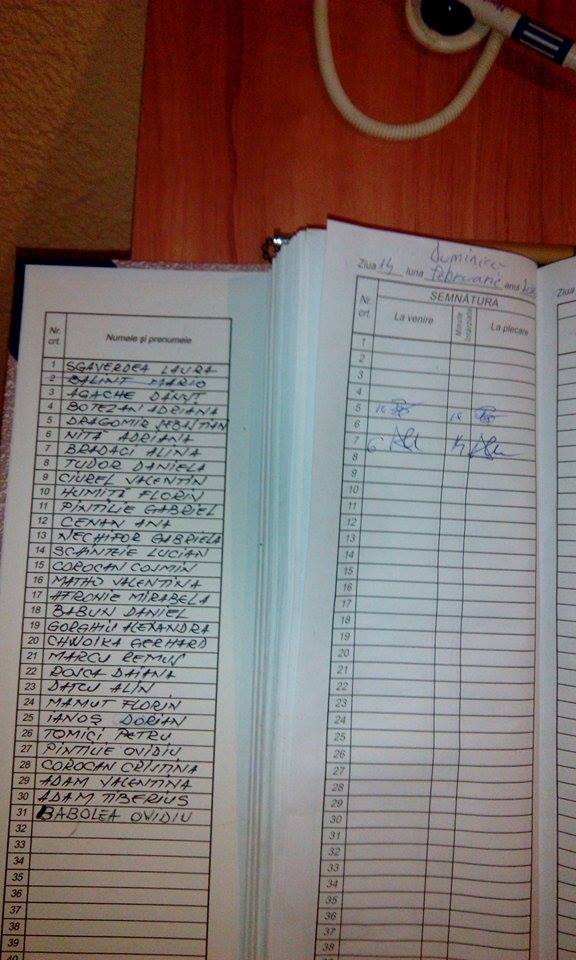 Nr. crt. Numele și prenumele
1 SGAVERDEA LAURA
2 BALINT MARIO
3 AGACHE DANUT
4 BOTEZAN ADRIANA
5 DRAGOMIR SEBASTIAN
6 NITĂ ADRIANA
7 BRADACI ALINA
8 TUDOR DANIELA
9 CIUREL VALENTIN
10 HUMITĂ FLORIN
11 PINTILIE GABRIEL
12 CENAN ANA
13 NECHIFOR GABRIELA
14 SCANTEIE LUCIAN
15 COROCAN COSMIN
16 MATHO VALENTINA
17 AFRONIE MIRABELA
18 BABUN DANIEL
19 GORGHIU ALEXANDRA
20 CHWOIKA GERHARD
21 MARCU REMUS
22 ROSCA DAIANA
23 DATCU ALIN
24 MAMUT FLORIN
25 IANOȘ DORIAN
26 TOMICI PETRU
27 PINTILIE OVIDIU
28 COROCAN CRISTINA
29 ADAM VALENTINA
30 ADAM TIBERIUS
31 BABOLEA OVIDIU
32
33
34
35
36
37
38
39
40
Duminica
Ziua 14 luna februarie anul
SEMNĂTURA
Nr. crt. La venire Minute întârziate La plecare
1
2
3
4
5 18 18
6
7 6
8
9
10
11
12
13
14
15
16
17
18
19
20
21
22
23
24
25
26
27
28
29
30
31
32
33
34
35
36
37
38
Ziua